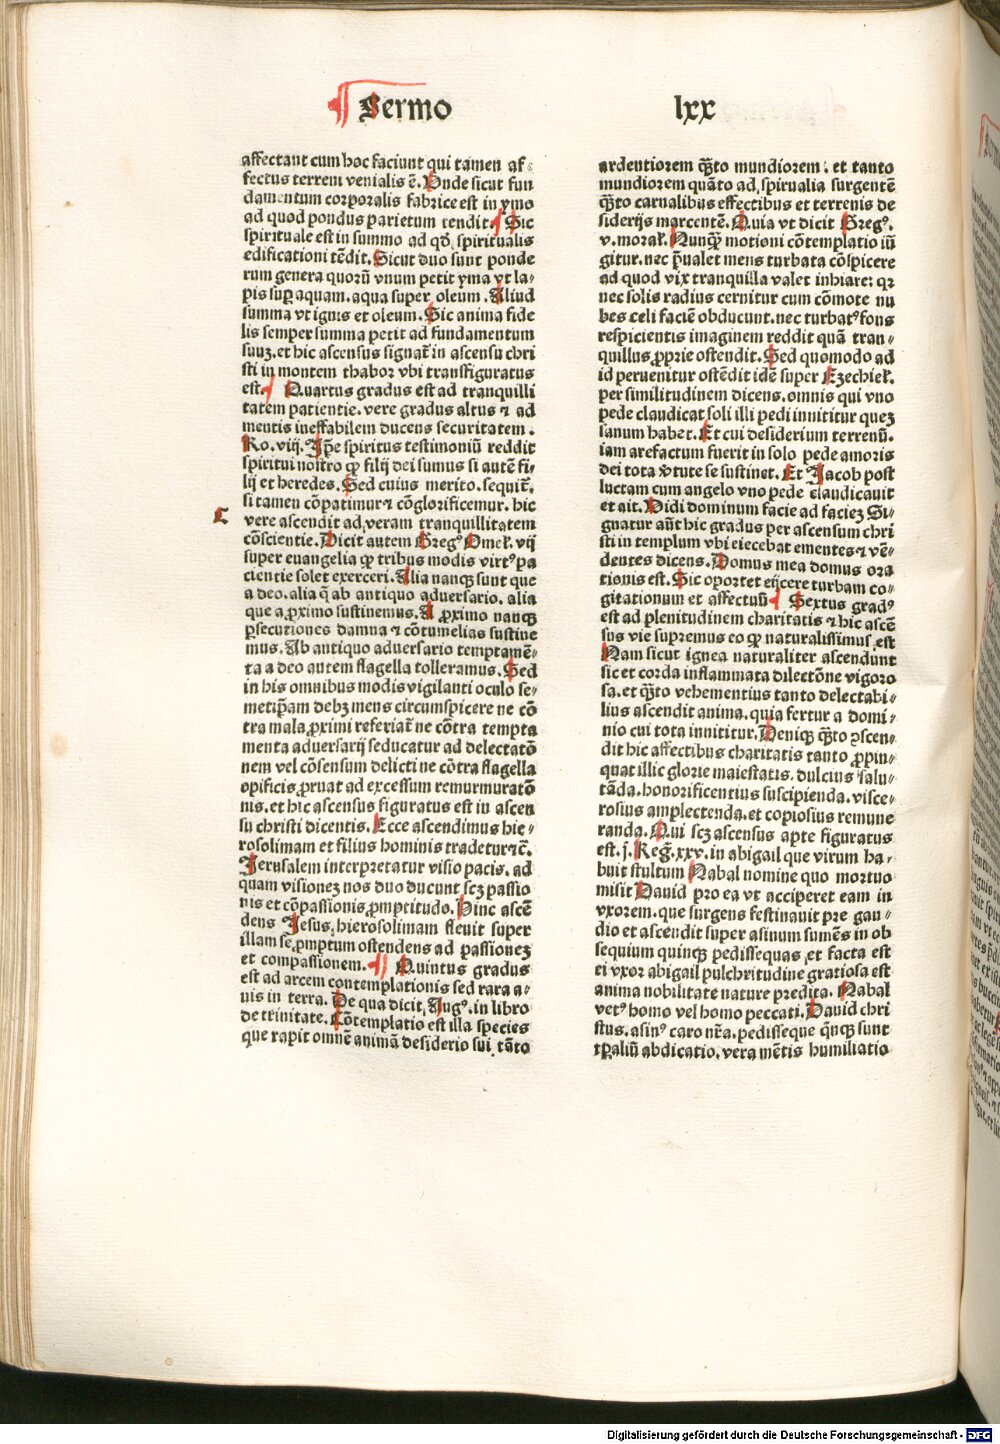 Sermo lxx
affectant cum hoc faciunt qui tamen af⸗
fectus terreni venialis ē. Unde sicut fun
damentum corporalis fabrice est in ymo
ad quod pondus parietum tendit. Sic
spirituale est in summo ad qđ spiritualis
edificationi tēdit. Sicut duo sunt ponde
rum genera quorū vnum petit yma vt la⸗
pis suꝑ aquam. aqua super oleum. Aliud
summa vt ignis et oleum. Sic anima fide
lis semper summa petit ad fundamentum
suuꝫ. et hic ascensus signat̄ in ascensu chri
sti in montem thabor vbi transfiguratus
est. Quartus gradus est ad tranquilli
tatem patientie. vere gradus altus ⁊ ad
mentis ineffabilem ducens securitatem.
Ro. viij. Ip̄e spiritus testimoniū reddit
spiritui nostro ꝙ filij dei sumus si autē fi⸗
lij et heredes. Sed cuius merito. sequit̄.
si tamen cōpatimur ⁊ cōglorificemur. hic
C
vere ascendit ad veram tranquillitatem
cōscientie. Dicit autem Gregꝰ Omel̄. vij
super euangelia ꝙ tribus modis virtꝰ pa
cientie solet exerceri. Alia nanqꝫ sunt que
a deo. alia q̄ ab antiquo aduersario. alia
que a ꝓximo sustinemus. A ꝓximo nanqꝫ
ꝑsecutiones damna ⁊ cōtumelias sustine
mus. Ab antiquo aduersario temptamē⸗
ta a deo autem flagella tolleramus. Sed
in his omnibus modis vigilanti oculo se⸗
metip̄am debꝫ mens circumspicere ne cō
tra mala ꝓximi referiat̄ ne cōtra tempta
menta aduersarij seducatur ad delectatō
nem vel cōsensum delicti ne cōtra flagella
opificis ꝓruat ad excessum remurmuratō
nis. et hic ascensus figuratus est in ascen
su christi dicentis. Ecce ascendimus hie⸗
rosolimam et filius hominis tradetur ⁊c̄.
Jerusalem interpretatur visio pacis. ad
quam visioneꝫ nos duo ducunt scꝫ passio
nis et cōpassionis ꝓmptitudo. Hinc ascē
dens Jesus. hierosolimam fleuit super
illam se ꝓmptum ostendens ad passioneꝫ
et compassionem. Quintus gradus
est ad arcem contemplationis sed rara a⸗
uis in terra. De qua dicit Augꝰ. in libro
de trinitate. Cōtemplatio est illa species
que rapit omnē animā desiderio sui tāto
ardentiorem q̄̄to mundiorem: et tanto
mundiorem quāto ad spirualia surgentē
q̄̄to carnalibus effectibus et terrenis de
siderijs marcentē. Quia vt dicit Gregꝰ.
v. moral̄. Nunqꝫ̄ motioni cōtemplatio iū
gitur. nec p̄ualet mens turbata cōspicere
ad quod vix tranquilla valet inhiare: qꝛ
nec solis radius cernitur cum cōmote nu
bes celi faciē obducunt. nec turbatꝰ fons
respicientis imaginem reddit quā tran⸗
quillus ꝓprie ostendit. Sed quomodo ad
id peruenitur ostēdit idē super Ezechiel̄.
per similitudinem dicens. omnis qui vno
pede claudicat soli illi pedi innititur queꝫ
sanum habet. Et cui desiderium terrenū.
iam arefactum fuerit in solo pede amoris
dei tota v̄tute se sustinet. Et Jacob post
luctam cum angelo vno pede claudicauit
et ait. Vidi dominum facie ad facieꝫ Si⸗
gnatur aūt hic gradus per ascensum chri
sti in templum vbi eiecebat ementes ⁊ vē⸗
dentes dicens. Domus mea domus ora
tionis est. Sic oportet eijcere turbam co⸗
gitationum et affectuū. Sextus gradꝰ
est ad plenitudinem charitatis ⁊ hic ascē
sus vie supremus eo ꝙ naturalissimus est
Nam sicut ignea naturaliter ascendunt
sic et corda inflammata dilectōne vigoro
sa. et q̄̄to vehementius tanto delectabi⸗
lius ascendit anima. quia fertur a domi⸗
nio cui tota innititur. Deniqꝫ q̄̄to ꝯscen⸗
dit hic affectibus charitatis tanto ꝓpin⸗
quat illic glorie maiestatis. dulcius salu⸗
tāda. honorificentius suscipienda. visce⸗
rosius amplectenda. et copiosius remune
randa. Qui scꝫ ascensus apte figuratus
est. j. Reḡ. xxv. in abigail que virum ha⸗
buit stultum Nabal nomine quo mortuo
misit Dauid pro ea vt acciperet eam in
vxorem. que surgens festinauit pre gau⸗
dio et ascendit super asinum sumēs in ob
sequium quinqꝫ pedissequas et facta est
ei vxor abigail pulchritudine gratiosa est
anima nobilitate nature predita. Nabal
vetꝰ homo vel homo peccati. Dauid chri
stus. asinꝰ caro nr̄a. pedisseque q̄nqꝫ sunt
tꝑaliū abdicatio. vera mētis humiliatio
Digitalisierung gefördert durch die Deutsche Forschungsgemeinschaft - DFG